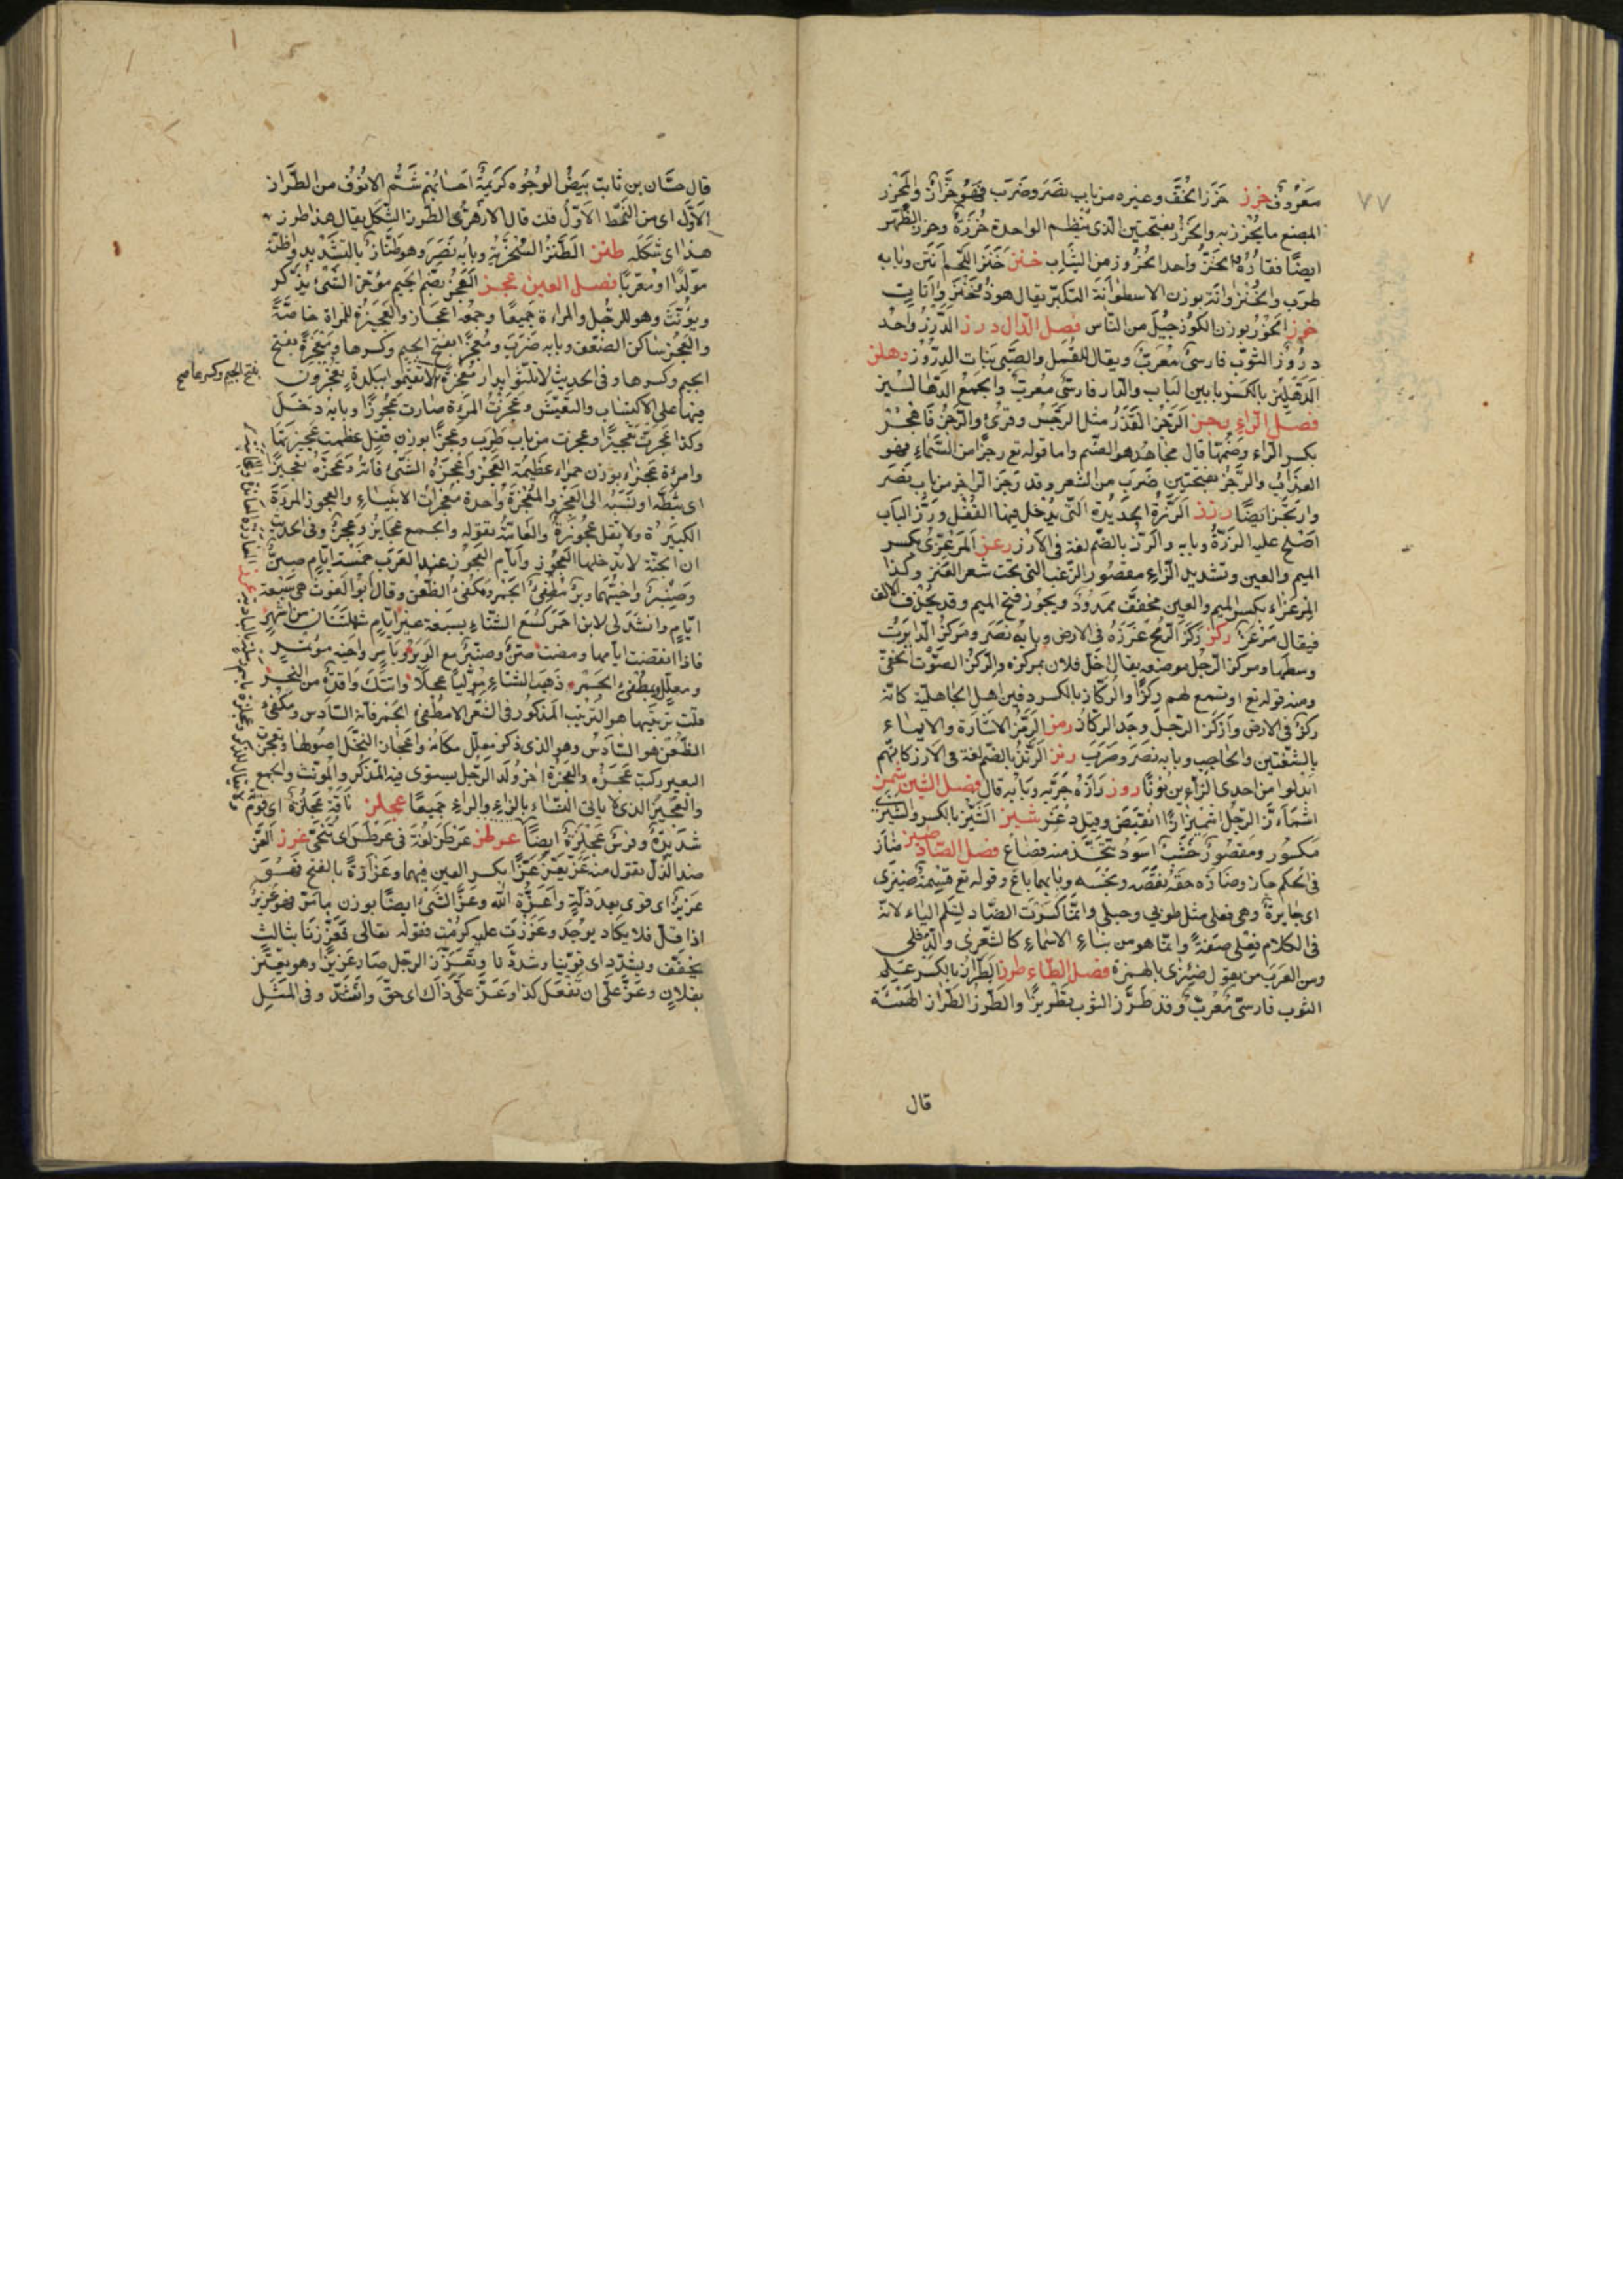 ٧٧
معروف خرز خرز الخف وغيره من باب نصر وضرب فهو خراز والمخرز
المبضع ما يخرز به والخرز بفتحتين الذي ينظم الواحدة خرزة وخرز الظهر
ايضا فقاره الخز واحد الخزوز من الثياب خنز خنز اللحم انتن وبابه
طرب والخنزوانة بوزن الاسطوانة التكبر يقال هو ذو خنزوانات
خوز الخوز بوزن الكوز جيل من الناس فصل الدال درز الدرز واحد
دروز الثوب فارسي معرب ويقال للقمل والصيبان بنات الدروز دهلز
الدهليز بالكسر ما بين الباب والدار فارسي معرب والجمع الدهاليز
فصل الراء رجز الرجز القذر مثل الرجس وقرئ والرجز فاهجر
بكسر الراء وضمها قال مجاهد هو الصنم واما قوله تع رجزا من السماء فهو
العذاب والرجز بفتحتين ضرب من الشعر وقد رجز الراجز من باب نصر
وارتجز ايضا رزز الرزة الحديدة التي يدخل فيها القفل ورز الباب
اصلح عليه الرزة وبابه رد والرز بالضم لغة في الارز رعز المرعزى بكسر
الميم والعين وتشديد الزاء مقصور الزغب الذي تحت شعر العنز وكذا
المرعزاء بكسر الميم والعين مخفف ممدود ويجوز فتح الميم وقد يحذف الالف
فيقال مرعز ركز ركز الرمح غرزه في الارض وبابه نصر ومركز الدايرة
وسطها ومركز الرجل موضعه يقال اخل فلان بمركزه والركز الصوت الخفي
ومنه قوله تع او تسمع لهم ركزا والركاز بالكسر دفين اهل الجاهلية كانه
ركز في الارض واركز الرجل وجد الركاز رمز الرمز الاشارة والايماء
بالشفتين والحاجب وبابه نصر وضرب رنز الرنز بالضم لغة في الارز كانهم
ابدلوا من احدى الزاءين نونا روز رازه جربه وبابه قال فصل الشين شمز
اشمأز الرجل اشميزازا انقبض وقيل ذعر شيز الشيز بالكسر والشيزى
مكسور ومقصور خشب اسود تتخذ منه قصاع فصل الصاد ضيز ضاز
في الحكم جار وضازه حقه نقصه وبخسه وبابهما باع وقوله تع قسمة ضيزى
اي جايرة وهي فعلى مثل طوبى وحبلى وانما كسرت الضاد لتسلم الياء لانه
في الكلام فعلى صفة وانما هو من بناء الاسماء كالشعرى والدفلى
ومن العرب من يقول ضئزى بالهمزة فصل الطاء طرز الطراز بالكسر علم
الثوب فارسي معرب وقد طرز الثوب تطريزا والطرز الطراز الهيئة
قال
قال حسان بن ثابت بيض الوجوه كريمة احسابهم شم الانوف من الطراز
الاول اي من النمط الاول قلت قال الازهري الطرز الشكل يقال هذا طرز
هذا اي شكله طنز الطنز السخرية وبابه نصر وهو طناز بالتشديد وظنه
مولدا او معربا فصل العين عجز العجز بضم الجيم مؤخر الشئ يذكر
ويؤنث وهو للرجل والمراءة جميعا وجمعه اعجاز والعجيزة للمراة خاصة
والعجز ساكن الضعف وبابه ضرب ومعجزا بفتح الجيم وكسرها ومعجزة بفتح
الجيم وكسرها وفي الحديث لا تلثوا بدار معجزة لا تقيموا ببلدة تعجزون
بفتح الجيم وكسرها صح
فيها على الاكتساب والتعيش وعجزت المرءة صارت عجوزا وبابه دخل
وكذا عجزت تعجيزا وعجزت من باب طرب وعجزا بوزن قفل عظمت عجيزتها
وامرءة عجزاء بوزن حمراء عظيمة العجز واعجزه الشئ فاته وعجزه تعجيزا
اي ثبطه او نسبه الى العجز والمعجزة واحدة معجزات الانبياء والعجوز المرءة
الكبيرة ولا تقل عجوزة والعامة تقوله والجمع عجايز وعجز وفي الحديث
ان الجنة لا تدخلها العجوز وايام العجوز عند العرب خمسة ايام صن
وصنبر واخيهما وبر مطفئ الجمر ومكفئ الظعن وقال ابو الغوث هي سبعة
ايام وانشدني لابن احمر كسع الشتاء بسبعة غبر ايام شهلتنا من الشهر
فاذا انقضت ايامها ومضت صن وصنبر مع الوبر وبآمر واخيه مؤتمر
ومعلل وبمطفئ الجمر ذهب الشتاء موليا عجلا واتتك واقدة من النجر
قلت ترتيبها هو الترتيب المذكور في الشعر الا مطفئ الجمر فانه السادس ومكفئ
الظعن هو السادس وهو الذي ذكر معلل مكانه واعجاز النخل اصولها وتعجزت
البعير ركبت عجزه والعجزة اخر ولد الرجل يستوي فيه المذكر والمؤنث والجمع
والعجيز الذي لا ياتي النساء بالزاء والراء جميعا عجلز ناقة عجلزة اي قوية
شديدة وفرس عجلزة ايضا عرطز عرطز لغة في عرطس اي تنحى عزز العز
ضد الذل تقول منه عز يعز عزا بكسر العين فيهما وعزازة بالفتح فهو
عزيز اي قوي بعد ذلة واعزه الله وعز الشئ ايضا بوزن ما مر فهو عزيز
اذا قل فلا يكاد يوجد وعززت عليه كرمت فقوله تعالى فعززنا بثالث
يخفف ويشدد اي قوينا وشددنا وتعزز الرجل صار عزيزا وهو يعتز
بفلان وعز على ان تفعل كذا وعز على ذاك اي حق واشتد وفي المثل